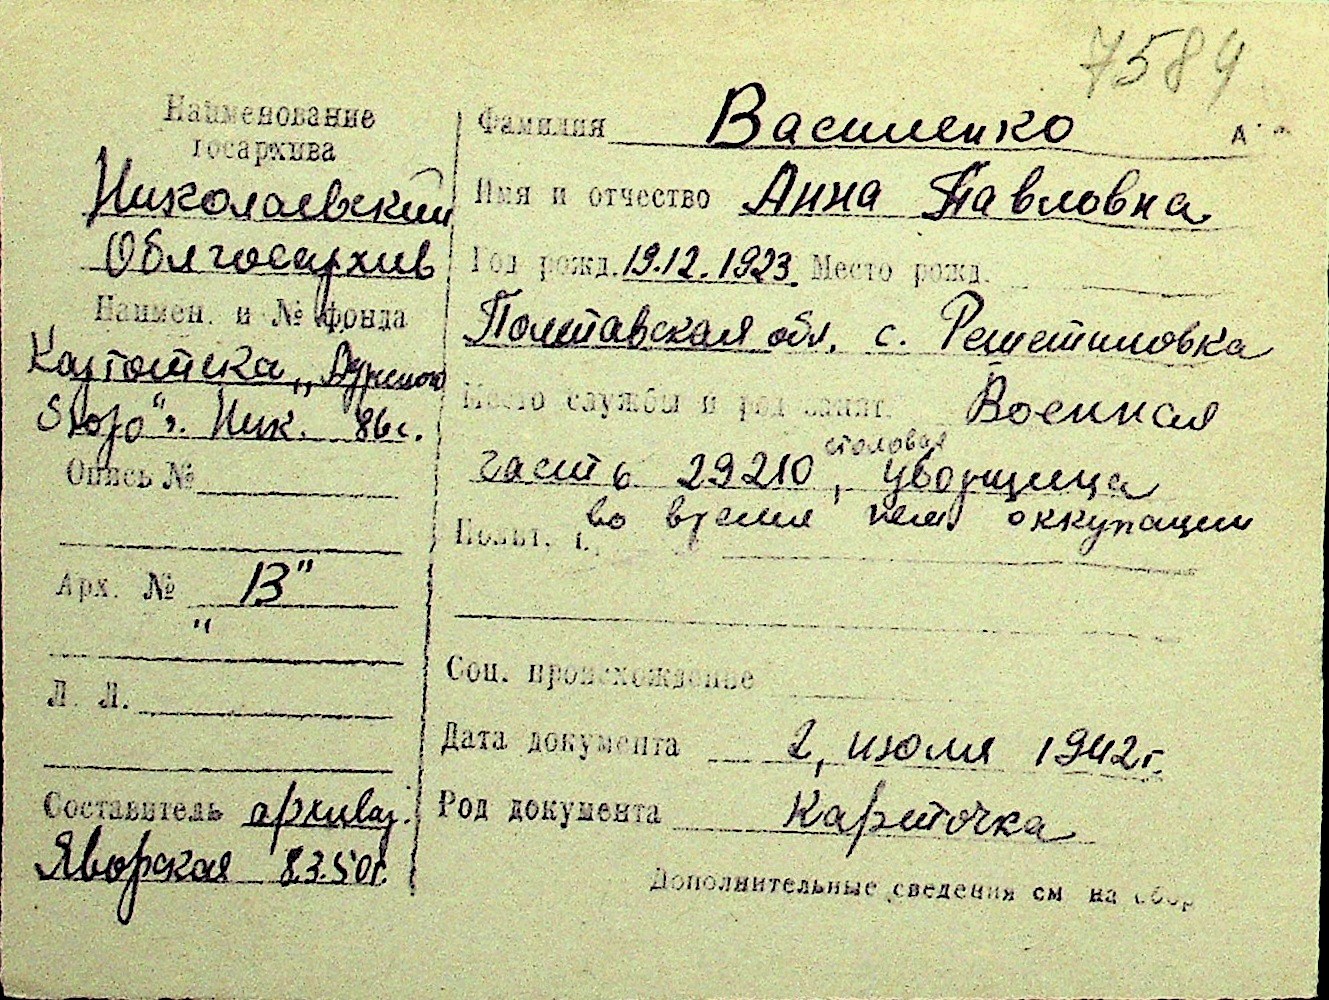 7584
Наименование
госархива
Николаевский
Облгосархив
Наимен. и № фонда
Картотека
Ник. 86с.
Опись №
Арх. № В"
"
Л. Л.
Составитель архивар.
Яворская 8.3.50г.
Фамилия Василенко
Имя и отчество Анна Павловна
Год рожд. 19.12.1923. Место рожд.
Полтавская обл. с. Решетиловка
Место службы и род занят. Военная
столовая
часть 29210, уборщица
во время нем. оккупации
Полит.
Соц. происхождение
Дата документа 2, июля 1942г.
Род документа Карточка
Дополнительные сведения см на обор